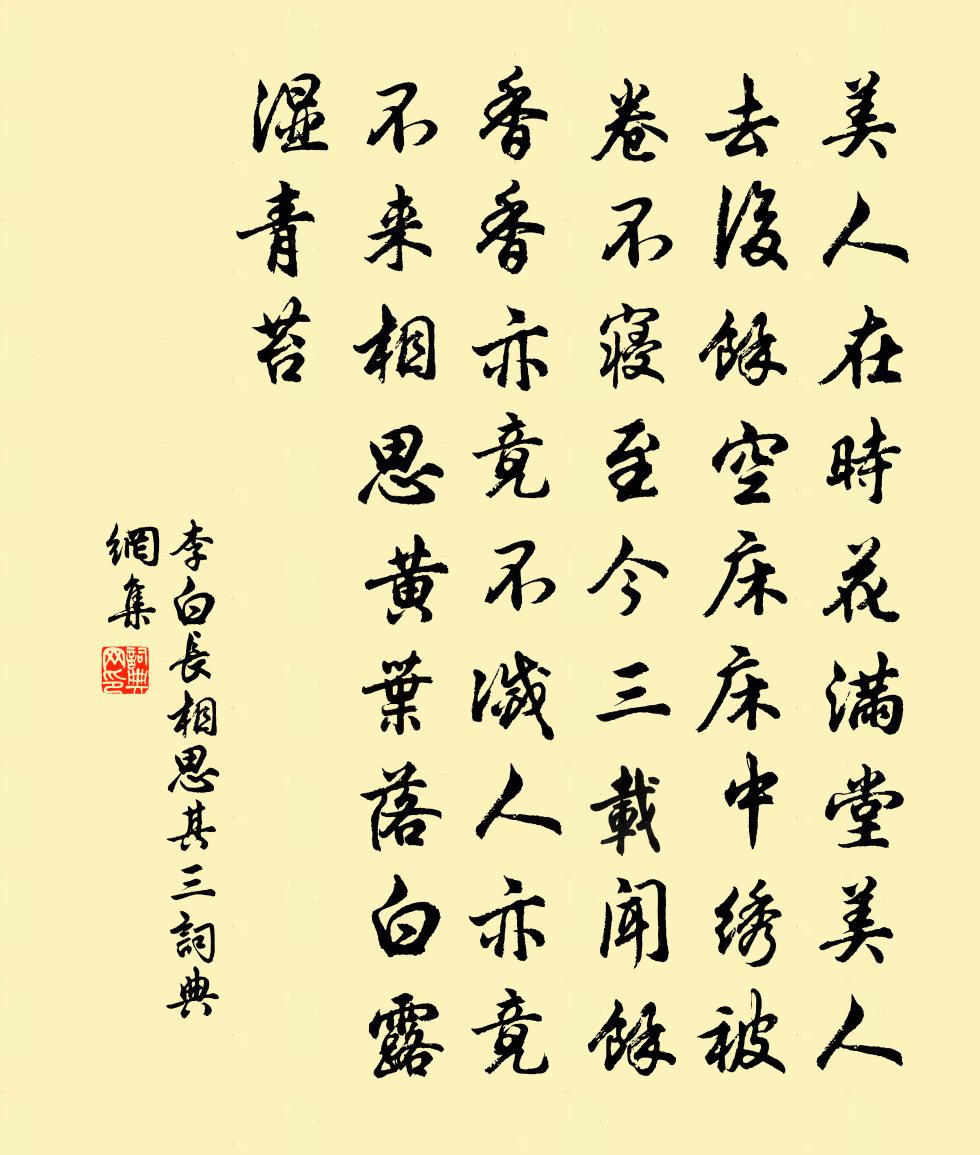 美人在時花滿堂美人
去後餘空床床中绣被
卷不寢至今三載聞餘
香香亦竟不滅人亦竟
不来相思黃葉落白露
濕青苔
李白長相思其三詞典
網集
詞典网印